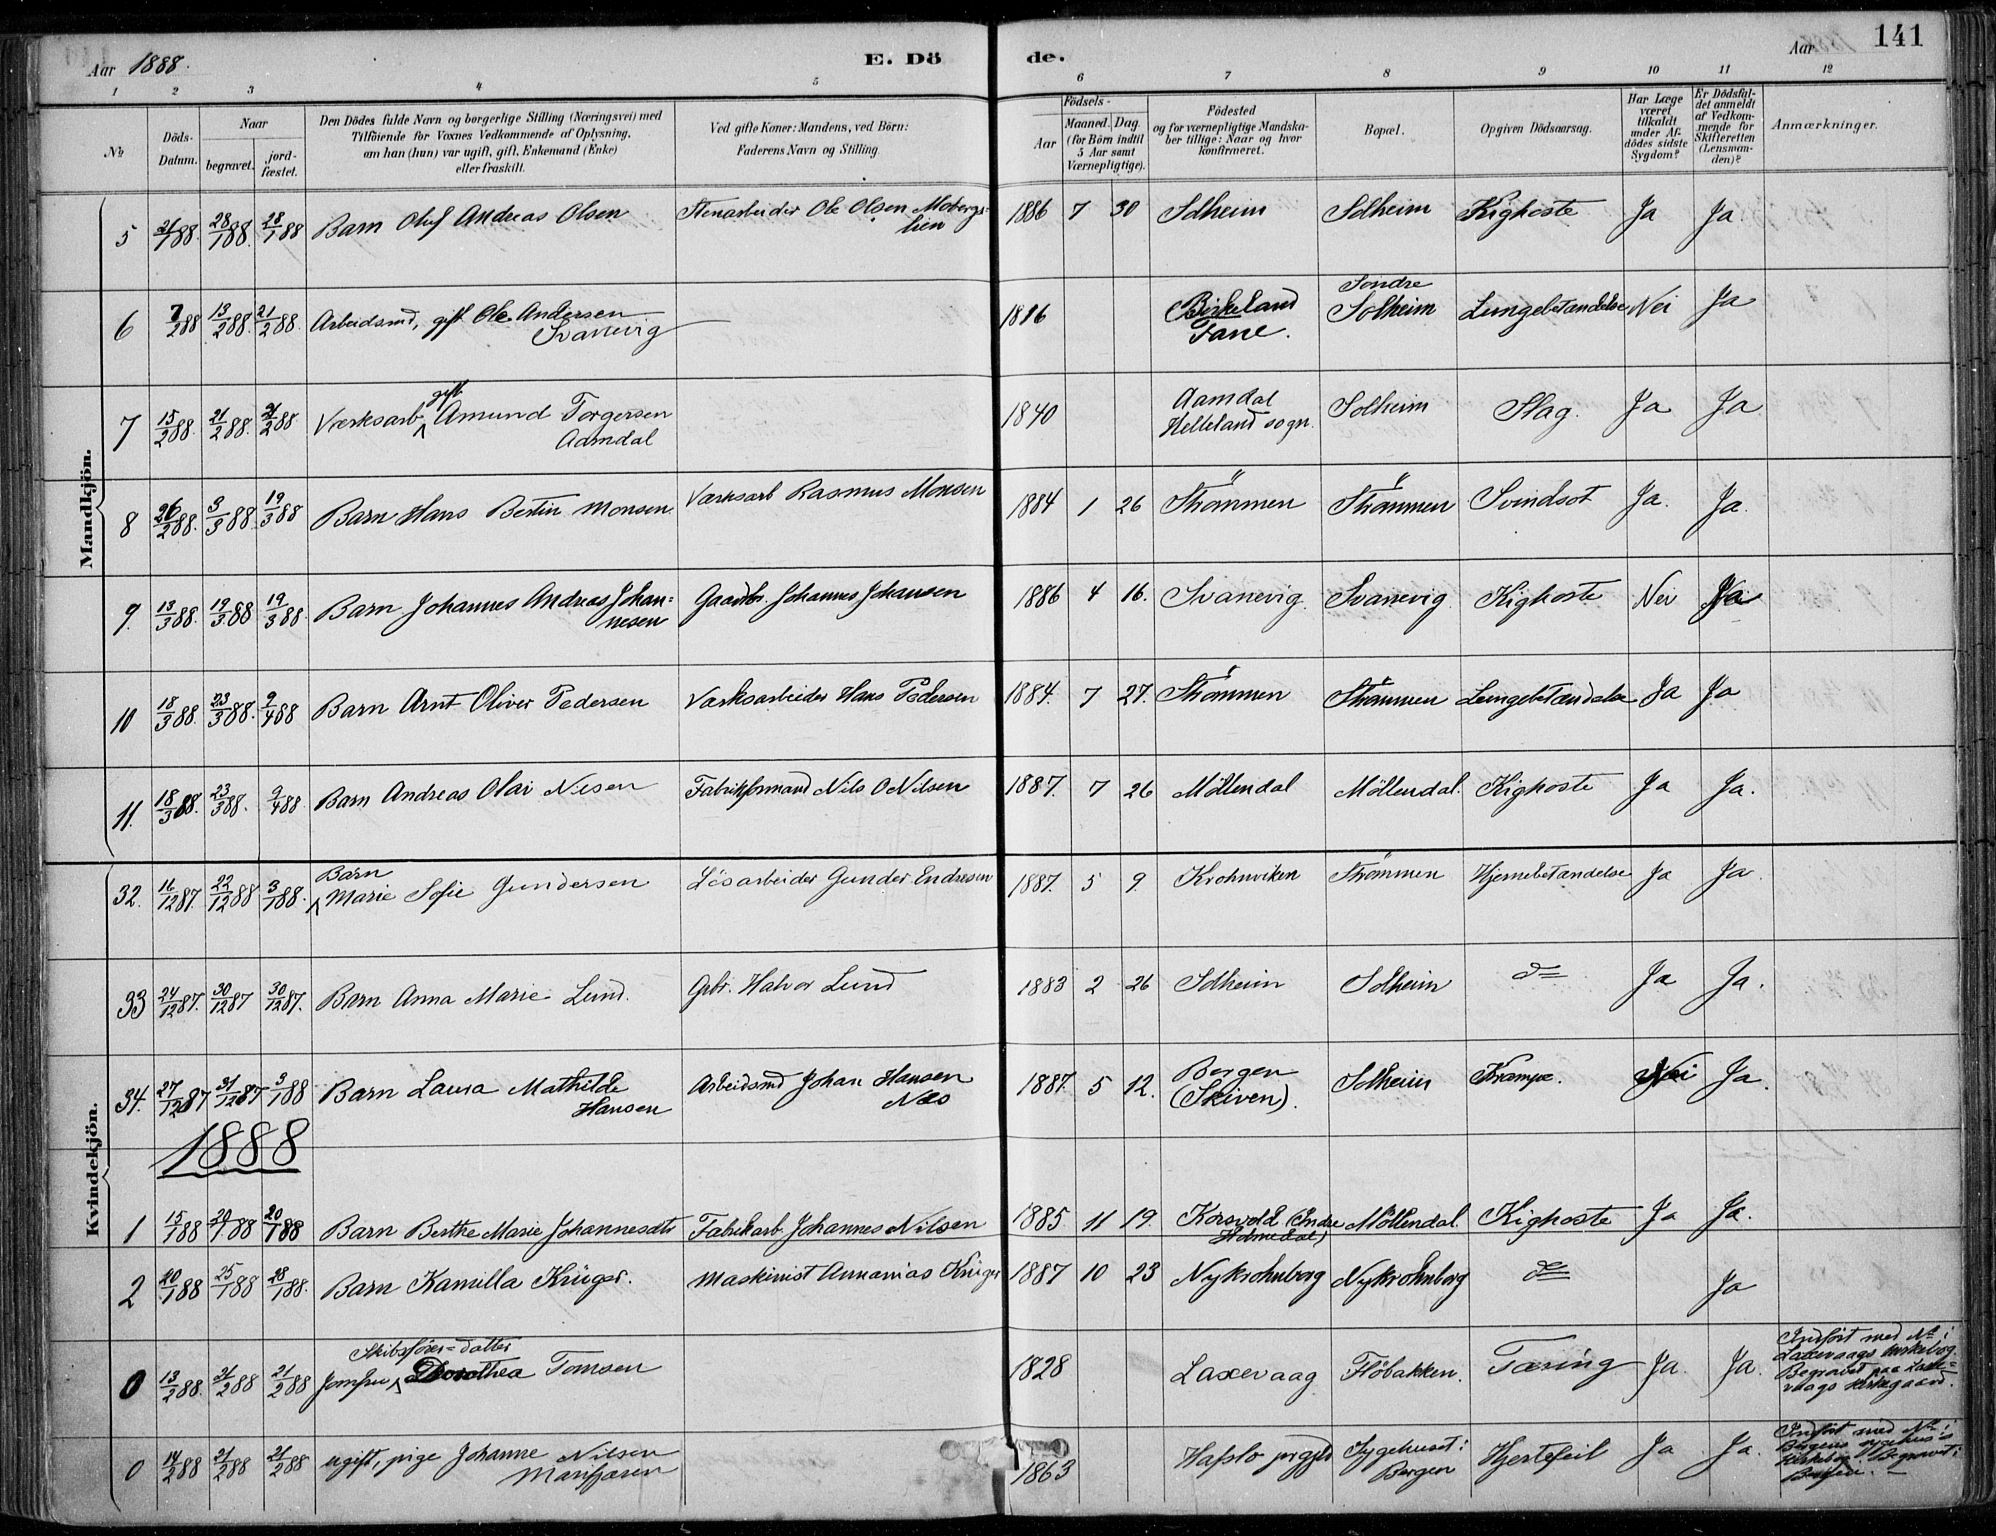 Aar 1888. E. Dö de. Aar 1888 141
1 2 3 4 5 6 7 8 9 10 11 12
№
Döds-Datum.
Naar
begravet.
jord-fæstet.
Den Dödes fulde Navn og borgerlige Stilling (Næringsvei) med
Tilföiende for Voxnes Vedkommende af Oplysning,
om han (hun) var ugift, gift, Enkemand (Enke)
eller fraskilt.
Ved gifte Koner: Mandens, ved Börn:
Faderens Navn og Stilling.
Födsels-
Aar
Maaned. Dag
(for Börn indtil
5 Aar samt
Værnepligtige).
Födested
og for værnepligtige Mandska-
ber tillige: Naar og hvor
konfirmeret.
Bopæl.
Opgiven Dödsaarsag.
Har Læge
været
tilkaldt
under Af-
dödes sidste
Sygdom?
Er Dödsfal-
det anmeldt
af Vedkom-
mende for
Skifteretten
(Lensman-
den)?
Anmærkninger.
Mandkjön.
5 21/1 88. 28/1 88. 28/1 88 Barn Olef Andreas Olsen Stenarbeider Ole Olsen Mobergs-
lien 1886 7 30 Solheim Solheim Kighoste Ja Ja.
6 7/2 88 13/2 88. 21/2 88. Arbeidsmd, gift Ole Andersen
Svanevig 1816 Birkeland
Fane. Søndre
Solheim Lungebetændelse Nei Ja
7 15/2 88. 21/2 88. 21/2 88 Værksarb. gift Amund Torgersen
Aamdal 1840 Aamdal
Helleland sogn. Solheim Slag. Ja Ja
8 26/2 88. 3/3 88. 19/3 88 Barn Hans Bertin Monsen Værksarb Rasmus Monsen 1884 1 26 Strømmen Strømmen Svindsot Ja. Ja.
9. 13/3 88. 19/3 88 19/3 88. Barn Johannes Andreas Johan-
nesen Gaardbr. Johannes Johansen 1886 4 16. Svanevig. Svanevig. Kighoste Nei Ja
10 18/3 88. 23/3 88. 2/4 88 Barn Arnt Oliver Pedersen Værksarbeider Hans Pedersen 1884. 7 27. Strømmen Strømmen Lungebetændelse Ja Ja
11. 18/3 88. 23/3 88. 2/4 88 Barn Andreas Olai Nilsen Fabrikformand Nils O Nilsen 1887. 7 26 Möllendal Möllendal. Kighoste Ja Ja.
Kvindekjön.
32. 16/12 87. 22/12 88 3/1 88. Barn
Marie Sofie Gundersen Lösarbeider Gunder Endresen 1887. 5 9. Krohnviken Strømmen Hjernebetændelse Ja Ja.
33 24/12 87. 30/12 87 30/12 87. Barn Anna Marie Lund. Gbr. Halvor Lund 1883 2 26 Solheim Solheim do Ja Ja.
34. 27/12 87 31/12 87 3/1 88 Barn Laura Mathilde
Hansen Arbeidsmd Johan Hansen
Næs 1887. 5 12. Bergen
(Skiven). Solheim Krampe. Nei Ja.
1888
1 15/1 88 20/1 88 20/1 88 Barn Berthe Marie Johannesdtr Fabrikarb. Johannes Nilsen 1885. 11 19. Korsvold (Indre
Holmedal) Möllendal. Kighoste Ja Ja.
2 20/1 88 25/1 88 28/1 88. Barn Kamilla Krüger. Maskinist Annanias Krüger 1887 10 23 Nykrohnborg Nykrohnborg do Ja
0 13/2 88. 21/2 88 21/2 88 Skibsfører-datter
Jomfru Dorothea Tomsen 1828 Laxevaag Flöbakken. Tæring Ja. Ja. Indført med No i
Laxevaags kirkebog.
Begravet paa Laxe-
vaags Kirkegaard.
0 14/2 88 21/2 88 21/2 88 ugift, pige Johanne Nilsen
Marifjæren 1863 Hafslo prgjld Sygehuset i
Bergen Hjertefeil Ja Ja. Indført med No i
Bergens sygehus's
kirkebog. Begravet i
Bergen. —